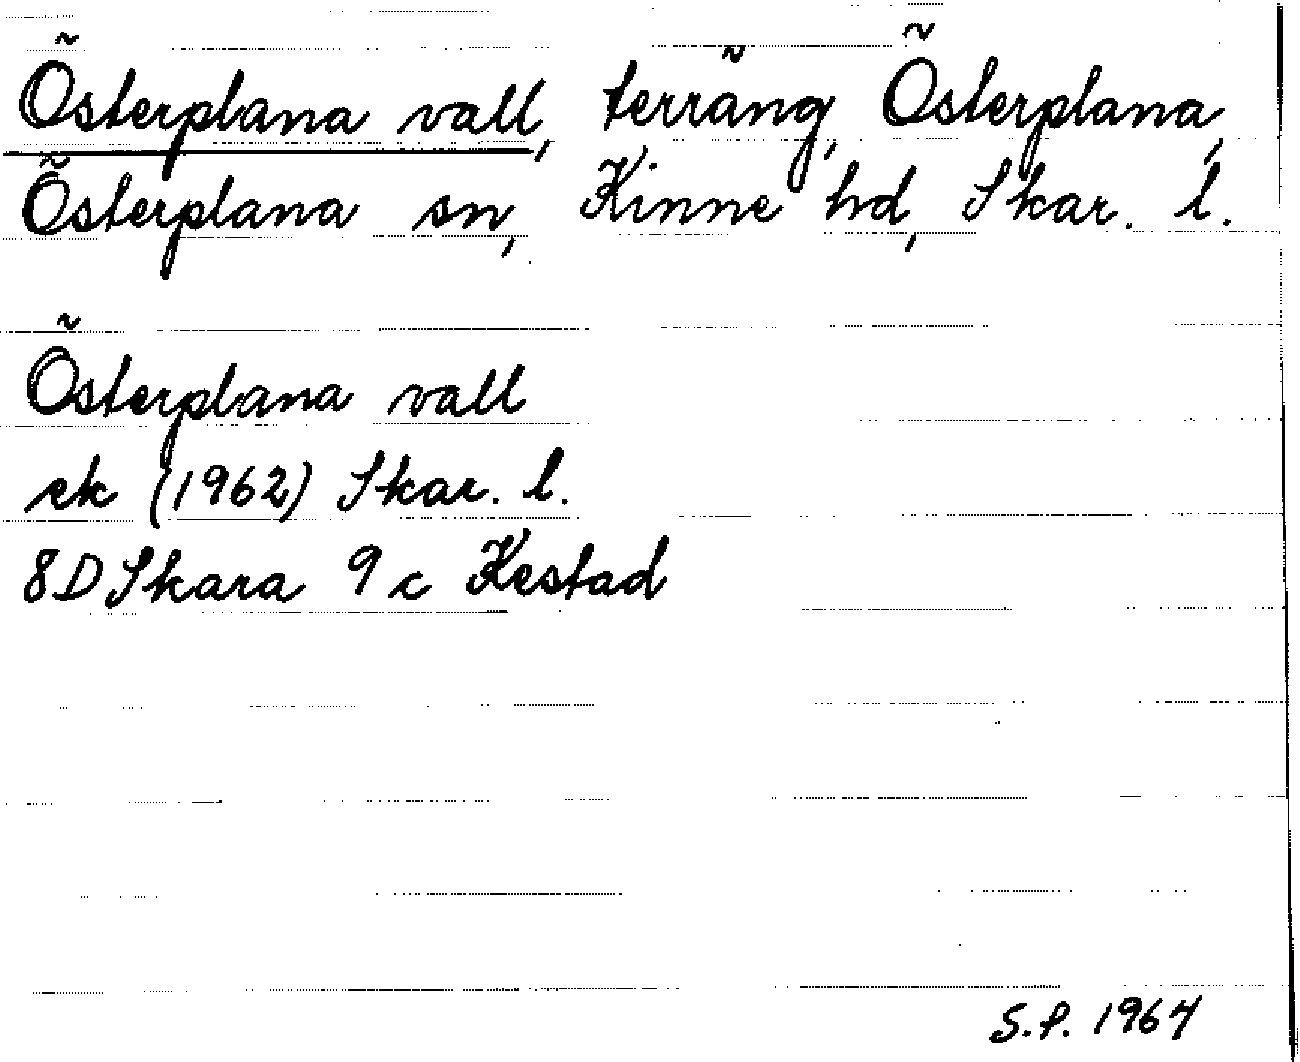 Österplana vall, terräng, Österplana,
Österplana sn, Kinne hd, Skar. l.
Österplana vall
ek (1962) Skar. l.
8D Skara 9 c Kestad
S.P. 1964